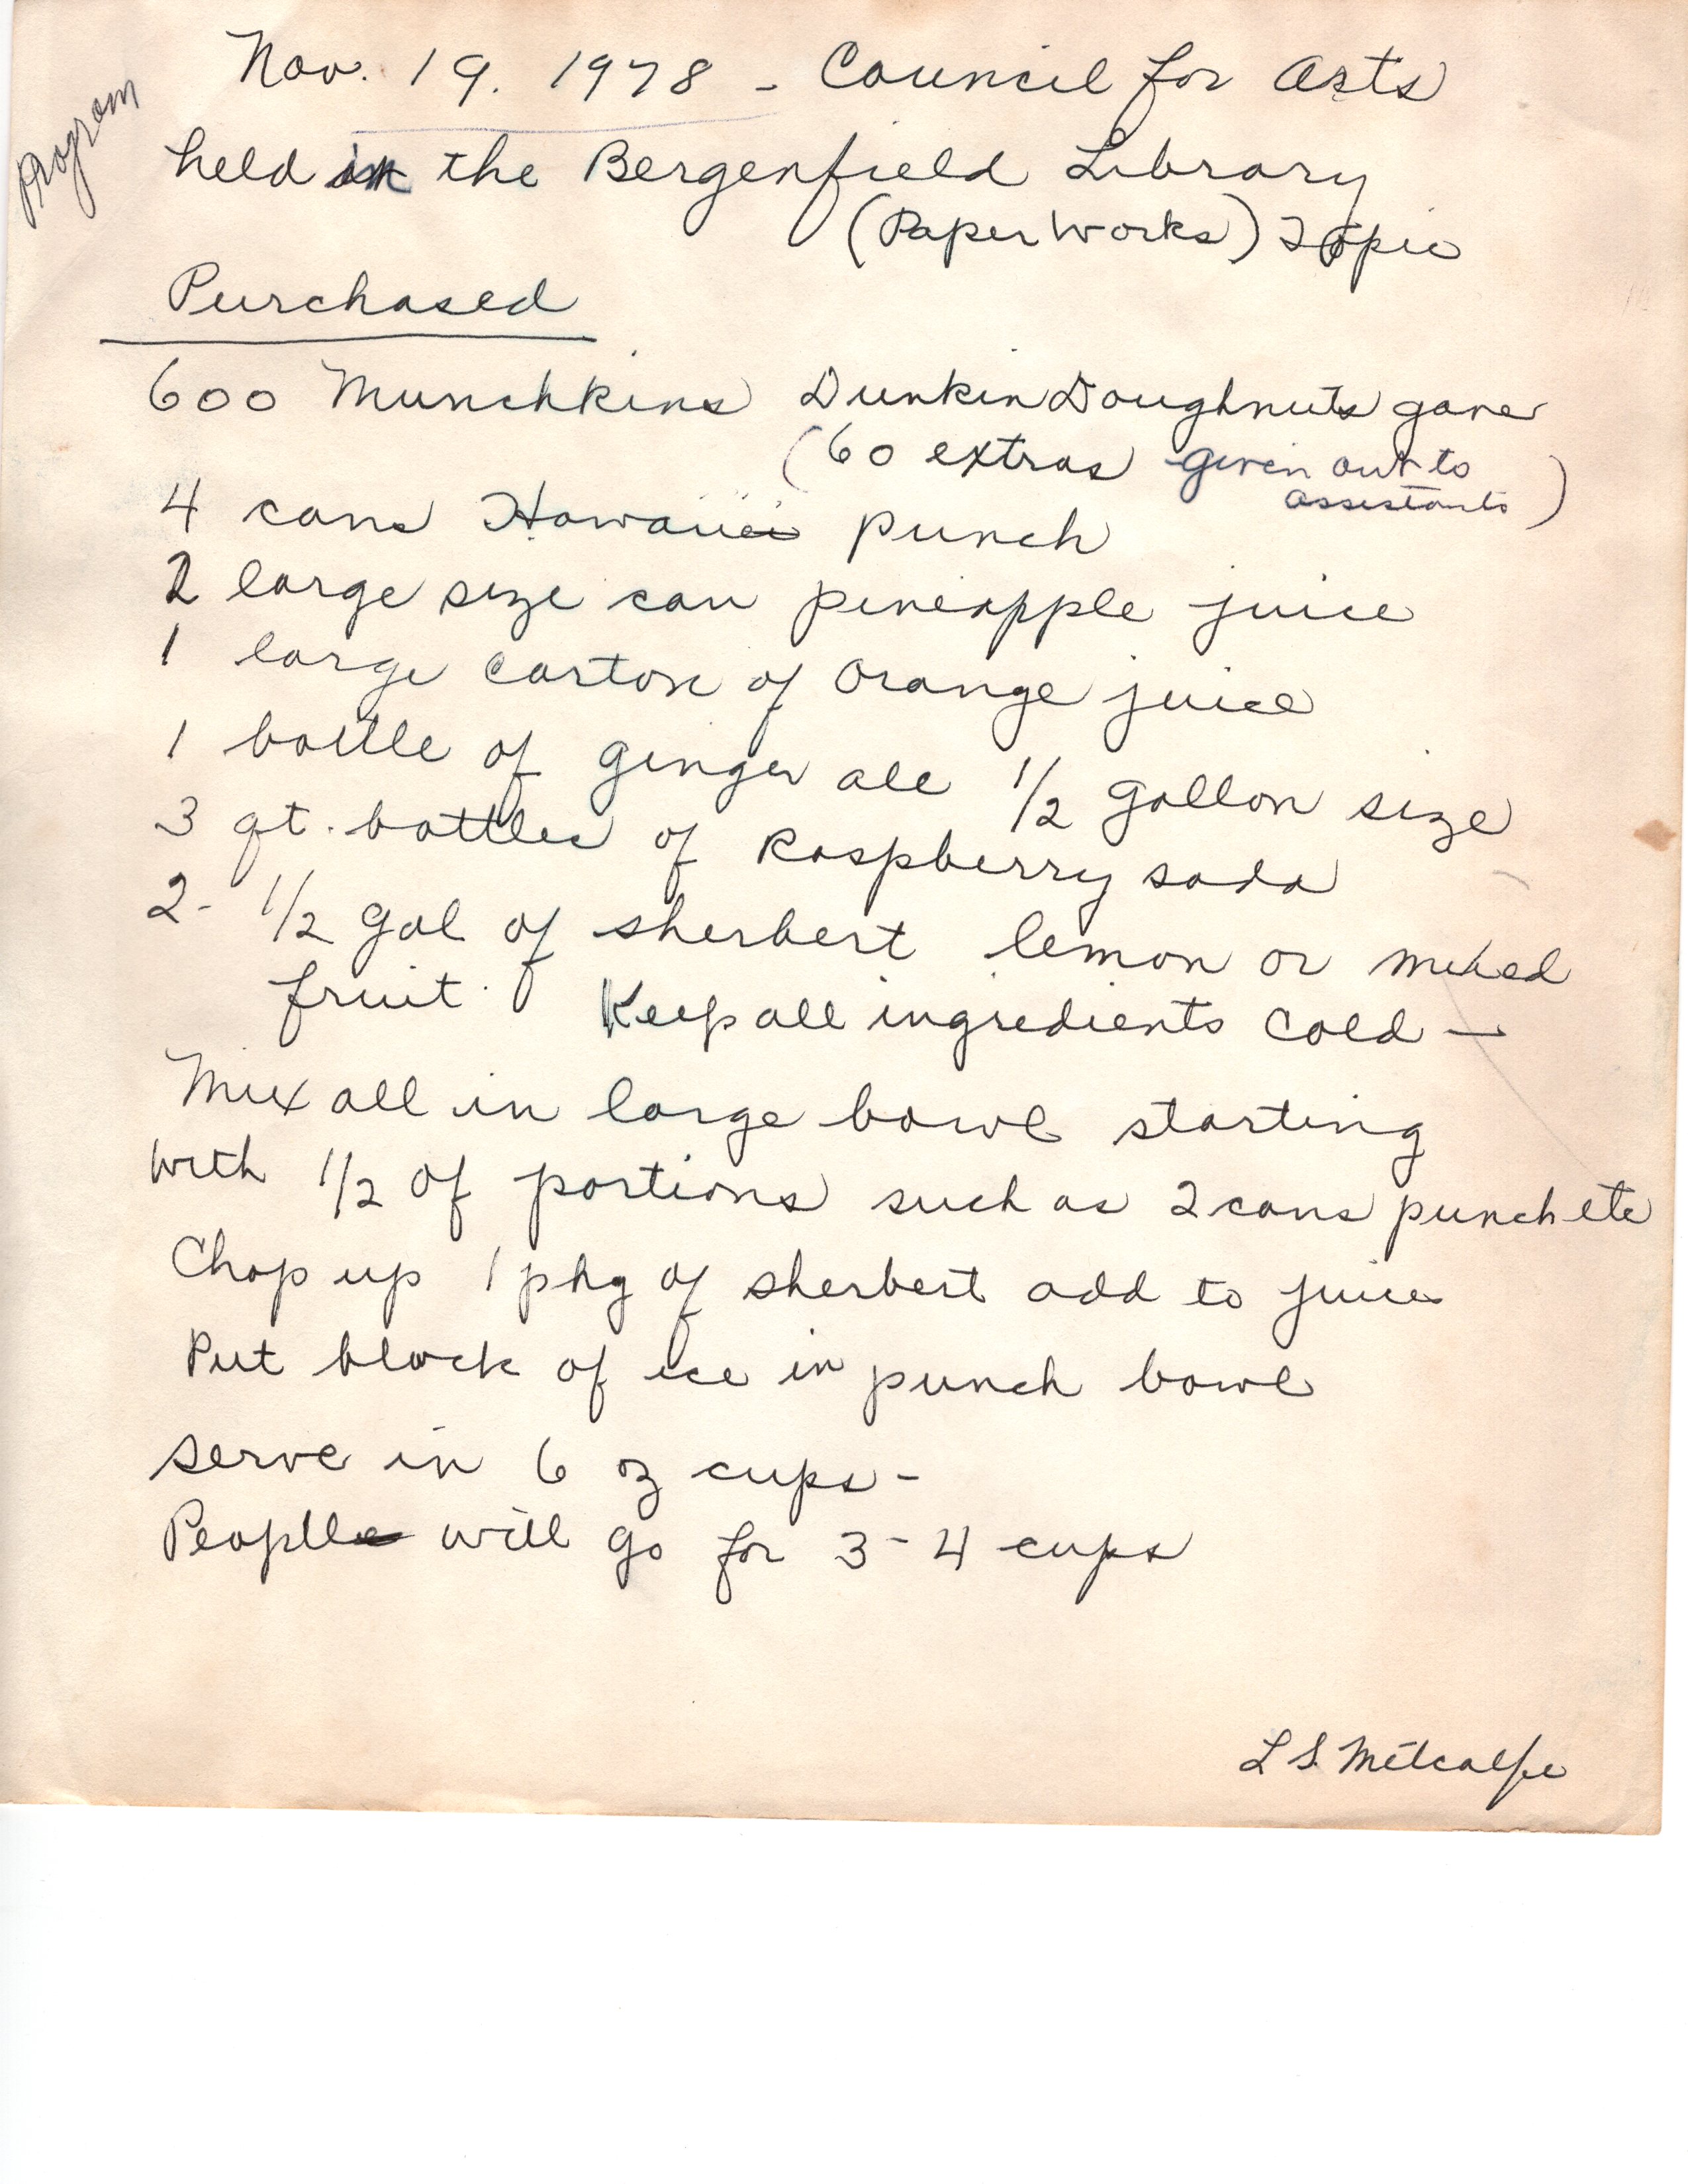 Program
Nov. 19. 1978 - Council for Arts
held in the Bergenfield Library
(Paper Works) Topic
Purchased
600 Munchkins Dunkin Doughnuts gave
(60 extras given out to
assistants)
4 cans Hawaiiei punch
2 large size can pineapple juice
1 large carton of Orange juice
1 bottle of ginger ale 1/2 gallon size
3 qt. bottles of Raspberry soda
2- 1/2 gal of sherbert lemon or mixed
fruit. Keep all ingredients cold —
Mix all in large bowl starting
with 1/2 of portions such as 2 cans punch etc
Chop up 1 pkg of sherbert add to juice
Put block of ice in punch bowl
serve in 6 oz cups -
People will go for 3-4 cups
L S. Metcalfe